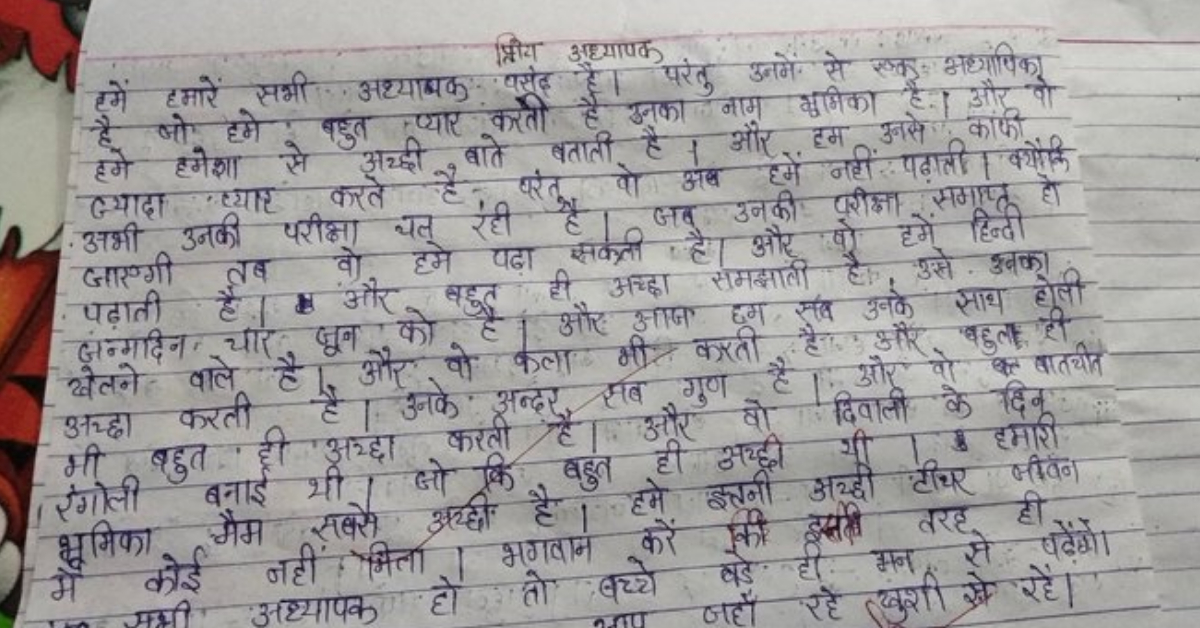 प्रिय अध्यापक
हमें हमारें सभी अध्यापक पसंद है। परंतु उनमें से एक अध्यापिका
है जो हमे बहुत प्यार करती है उनका नाम भूमिका है। और वो
हमे हमेशा से अच्छी बाते बताती है। और हम उनसे काफी
ज्यादा प्यार करते है परंतु वो अब हमें नहीं पढ़ाती। क्योंकि
अभी उनकी परीक्षा चल रही है। जब उनकी परीक्षा समाप्त हो
जाएगी तब वो हमे पढ़ा सकती है। और वो हमें हिन्दी
पढ़ाती है। और बहुत ही अच्छा समझाती है। उसे उनका
जन्मदिन चार जून को है। और आज हम सब उनके साथ होली
खेलने वाले है। और वो कला भी करती है और बहुत ही
अच्छा करती है। उनके अन्दर सब गुण है। और वो बातचीत
भी बहुत ही अच्छा करती है। और वो दिवाली के दिन
रंगोली बनाई थी। जो कि बहुत ही अच्छी थी। हमारी
भूमिका मैम सबसे अच्छी है। हमे इतनी अच्छी टीचर जीवन
में कोई नहीं मिला। भगवान करें की तरह ही
सभी अध्यापक हो तो बच्चे बड़े ही मन से पढ़ेंगे।
आप जहाँ रहे खुशी से रहे।